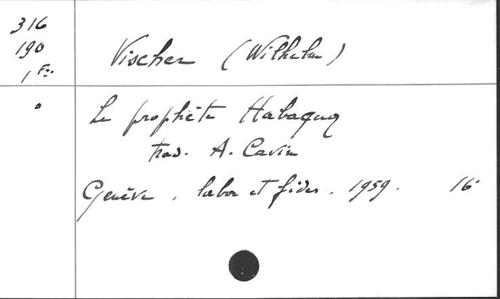 316
190
1 Fr.
Vischer (Wilhelm)
Le prophète Habaquq
trad. A. Cavin
Genève, labor et fides. 1959. 16°